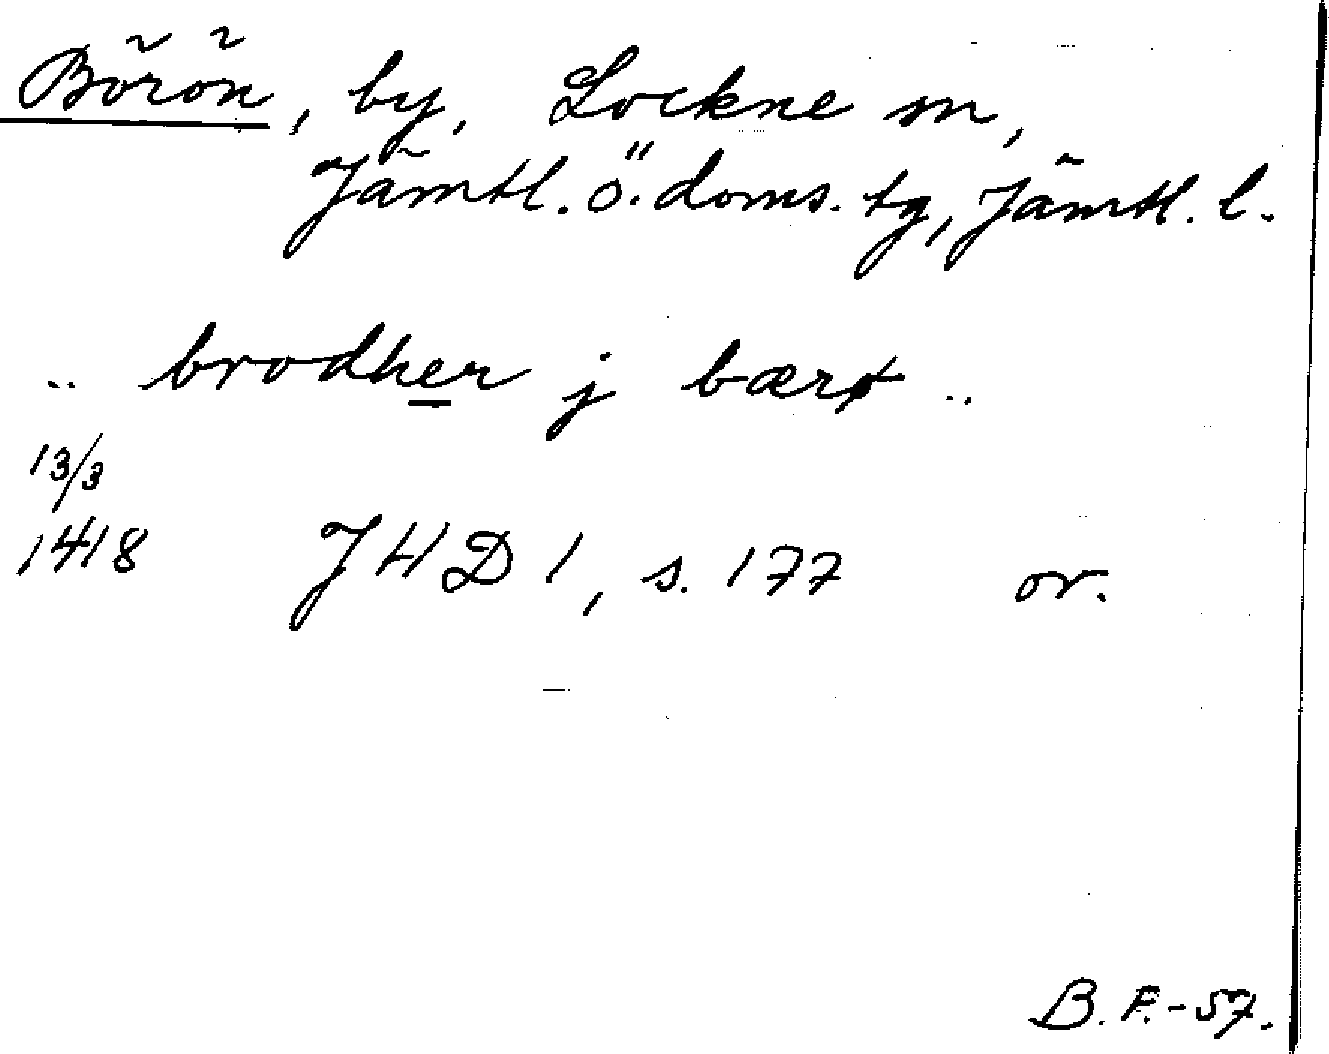 Börön, by, Lockne sn,
Jämtl. ö. doms. tg, Jämtl. l.
.. brodher j bærø ..
13/3
1418 JHD 1, s. 177 or.
B. F. - 57.